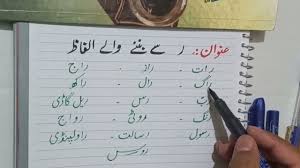 عنوان: ر سے بننے والے الفاظ
رات - راز - راج
راگ - رال - راکھ
رب - رس - ریل گاڑی
رنگ - روٹی - رواج
رسول - رسالت - راولپنڈی
روس